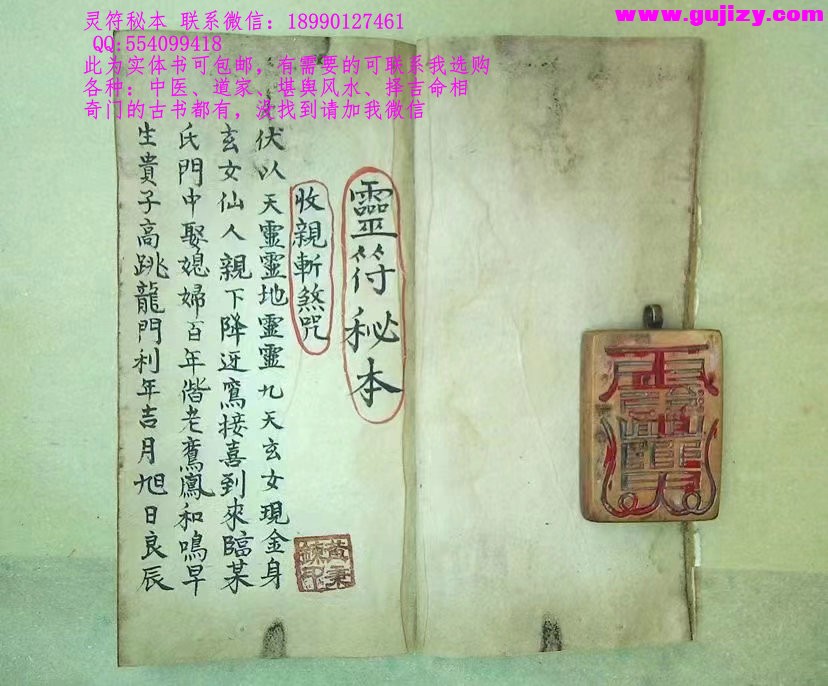 灵符秘本 联系微信：18990127461
QQ:554099418
此为实体书可包邮，有需要的可联系我选购
各种：中医、道家、堪舆风水、择吉命相
奇门的古书都有，没找到请加我微信
www.gujizy.com
靈符秘本
收親斬煞咒
伏以天靈靈地靈靈九天玄女現金身
玄女仙人親下降迓鸾接喜到來臨某
氏門中娶媳婦百年偕老鸞鳳和鳴早
生貴子高跳龍門利年吉月旭日良辰